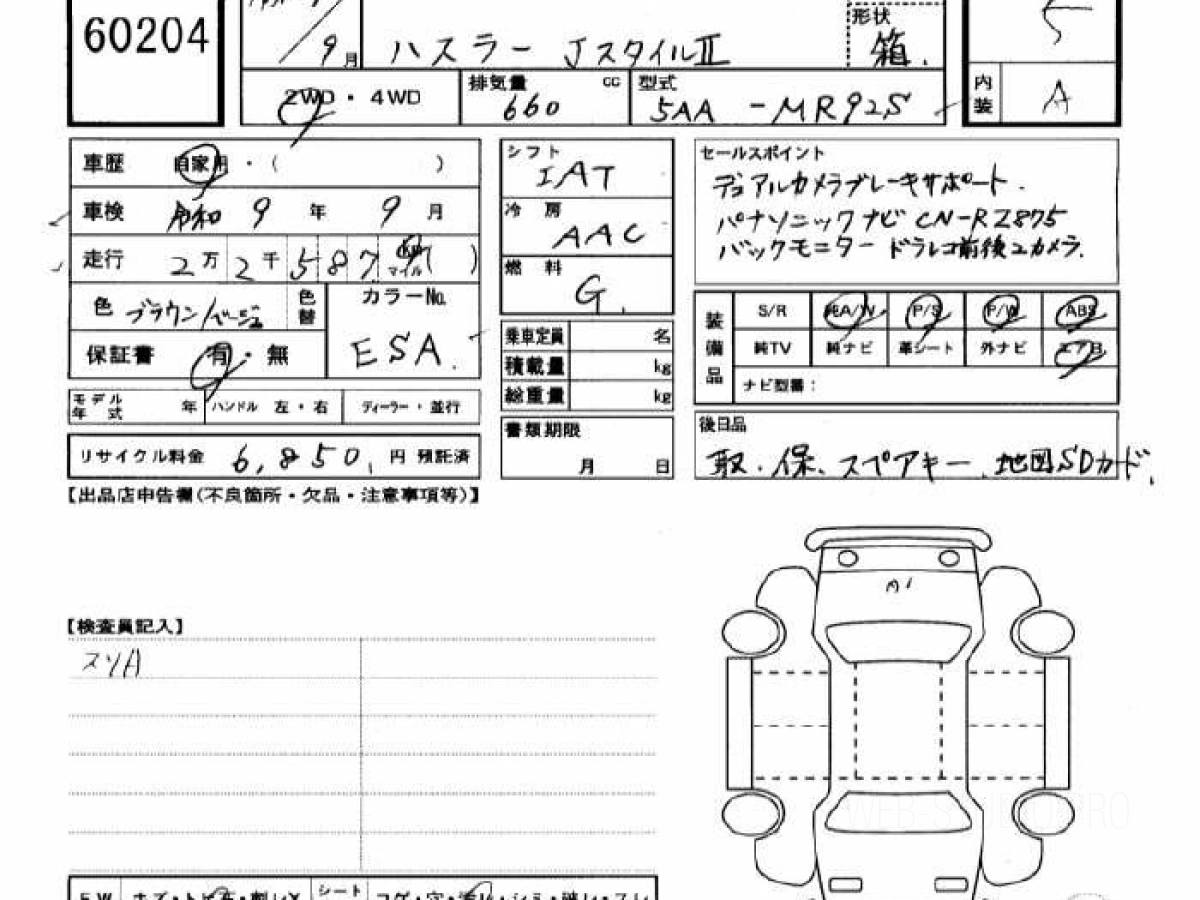 60204
9月
ハスラー JスタイルⅡ
形状
箱.
5
内装 A
2WD・4WD
排気量 cc
660
型式
5AA-MR92S
車歴 自家用・( )
車検 令和 9年 9月
走行 2万2千587 マイル( )
色 ブラウン/ベージュ
色替
カラーNo.
ESA.
保証書 有・無
モデル年式 年
ハンドル 左・右
ディーラー・並行
リサイクル料金 6,850, 円 預託済
シフト
IAT
冷房
AAC
燃料
G.
乗車定員 名
積載量 kg
総重量 kg
書類期限
月 日
セールスポイント
デュアルカメラブレーキサポート.
パナソニックナビ CN-RZ875
バックモニター ドラレコ前後2カメラ.
装備品
S/R 純A/W P/S P/W ABS
純TV 純ナビ 革シート 外ナビ エアB
ナビ型番:
後日品
取.保.スペアキー.地図SDカード,
【出品店申告欄(不良箇所・欠品・注意事項等)】
A1
【検査員記入】
スソA
FW
シート